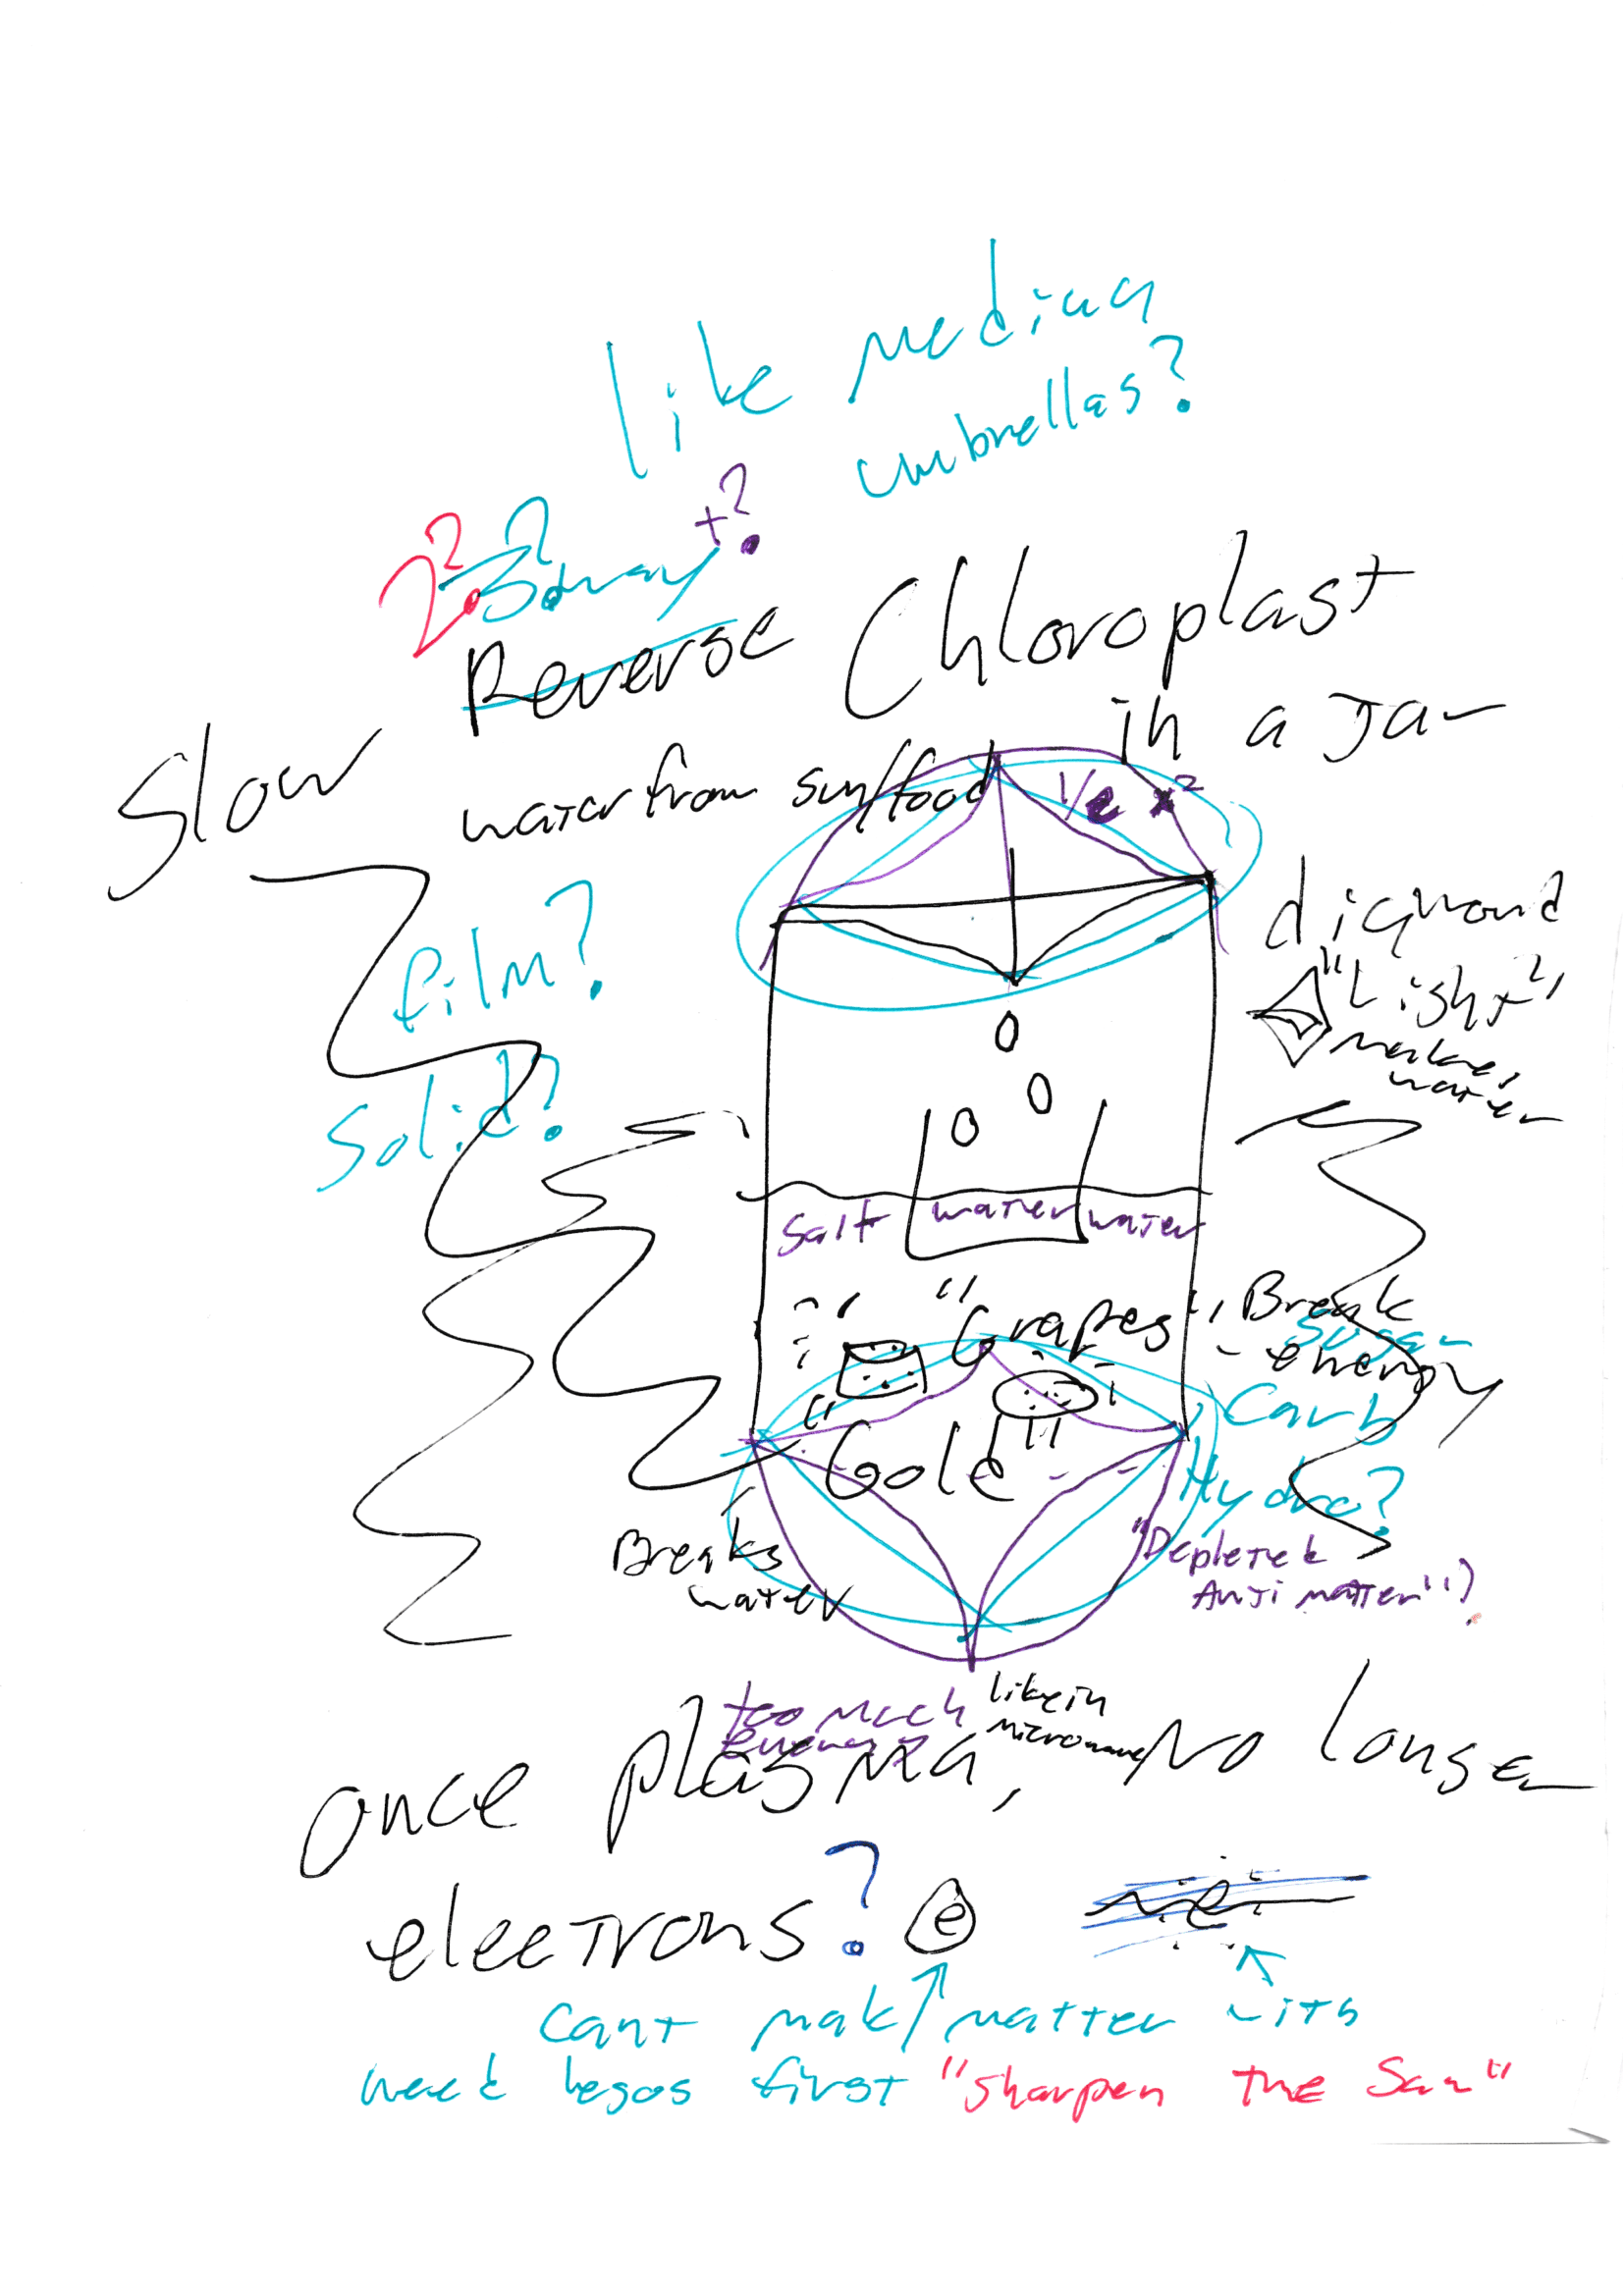 like median
umbrellas?
2? 3? way +?
Reverse Chloroplast
in a Jar
Slow
water from sun/food
1/e x²
film?
Solid?
diamond
"Light²"
makes
water
0
0
0
Salt water water
"Grapes"
Break
Sugar
energy
Carb
Hydro?
"Gold"
Breaks
water
"Depleted
Antimatter"?
too much
energy
like in
microwave
once plasma, No longer
electrons? e
e
Cant mak matter with
need legos first "sharpen the Saw"